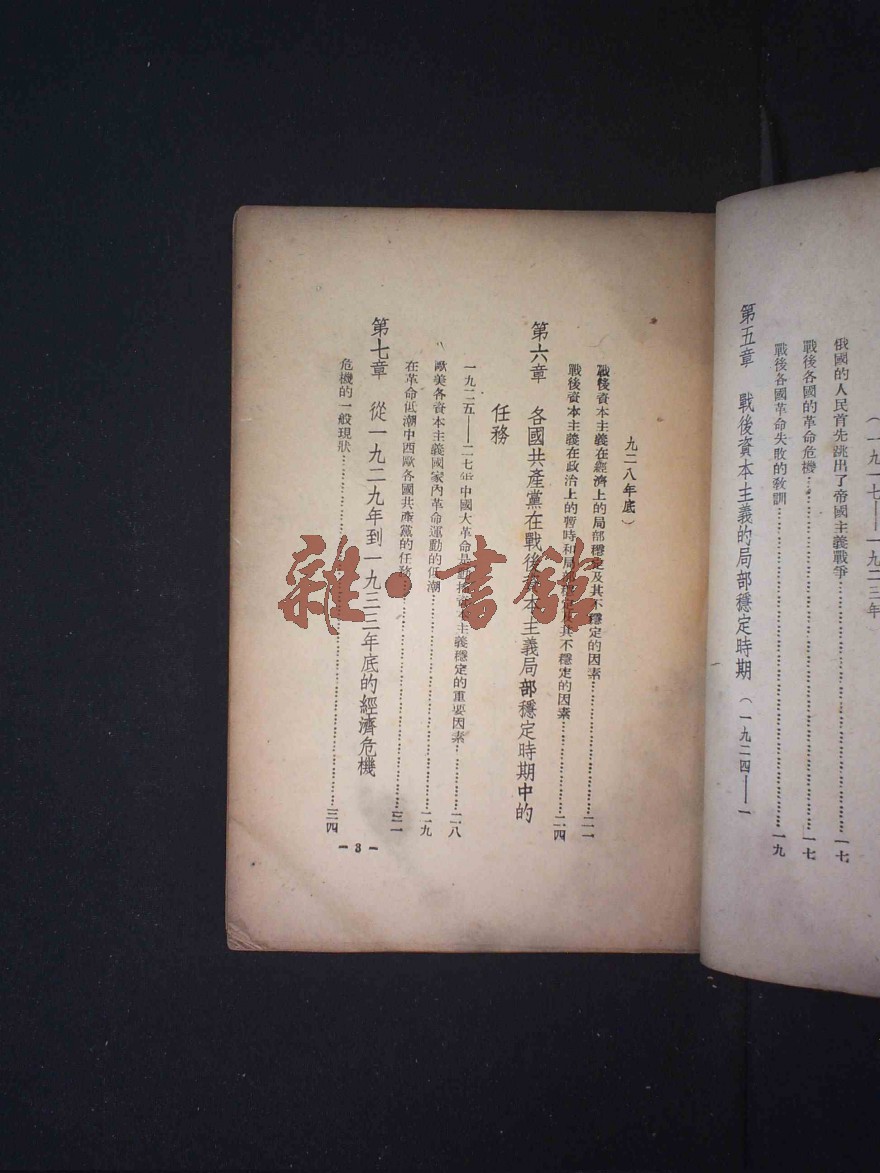 （一九一七——一九二三年）
俄國的人民首先跳出了帝國主義戰爭……………一七
戰後各國的革命危機……………一七
戰後各國革命失敗的敎訓……………一九
第五章 戰後資本主義的局部穩定時期（一九二四——一
九二八年底）
戰後資本主義在經濟上的局部穩定及其不穩定的因素……………二一
戰後資本主義在政治上的暫時和局部穩定及其不穩定的因素……………二四
第六章 各國共產黨在戰後資本主義局部穩定時期中的
任務
一九二五——二七年中國大革命是動搖資本主義穩定的重要因素……………二八
歐美各資本主義國家內革命運動的低潮……………二九
在革命低潮中西歐各國共產黨的任務……………三一
第七章 從一九二九年到一九三三年底的經濟危機
危機的一般現狀……………三四
－3－
雜·書館